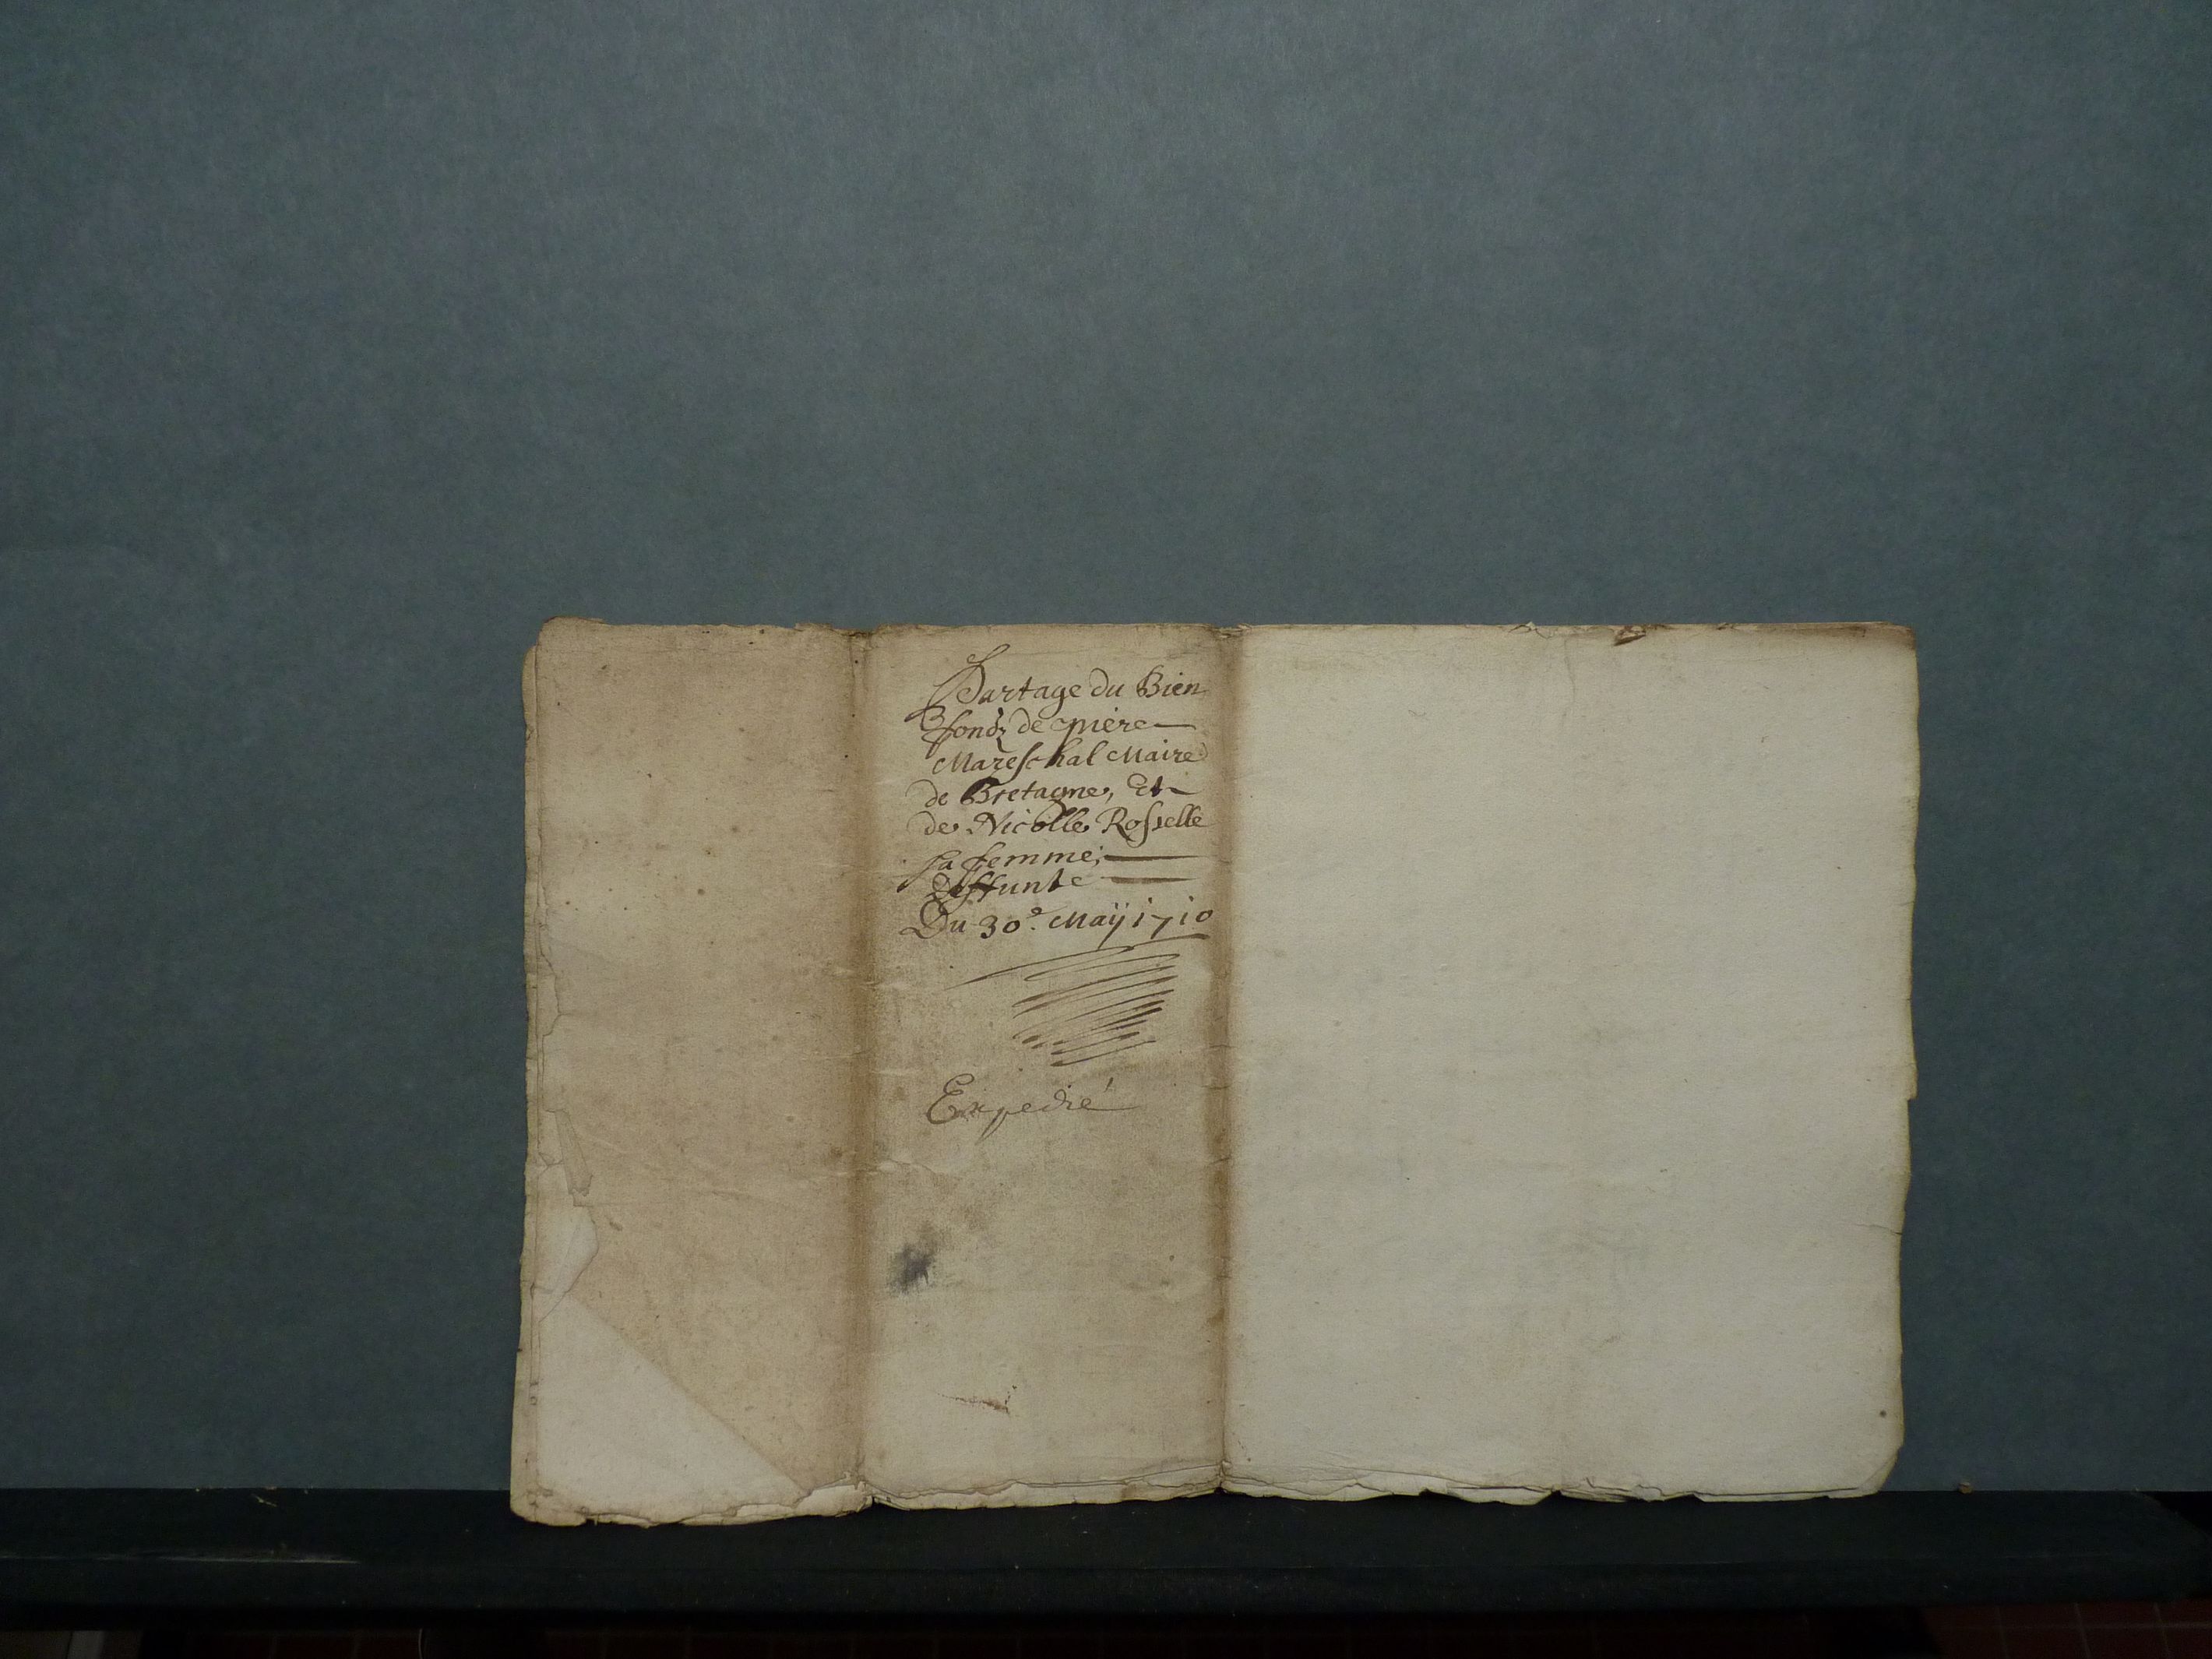 Partage du Bien
fondz de pierre
Mareschal Maire
de Bretagne, Et
de Nicolle Rosselle
sa femme,
deffunte
Du 30e. Maÿ 1710
Expedié